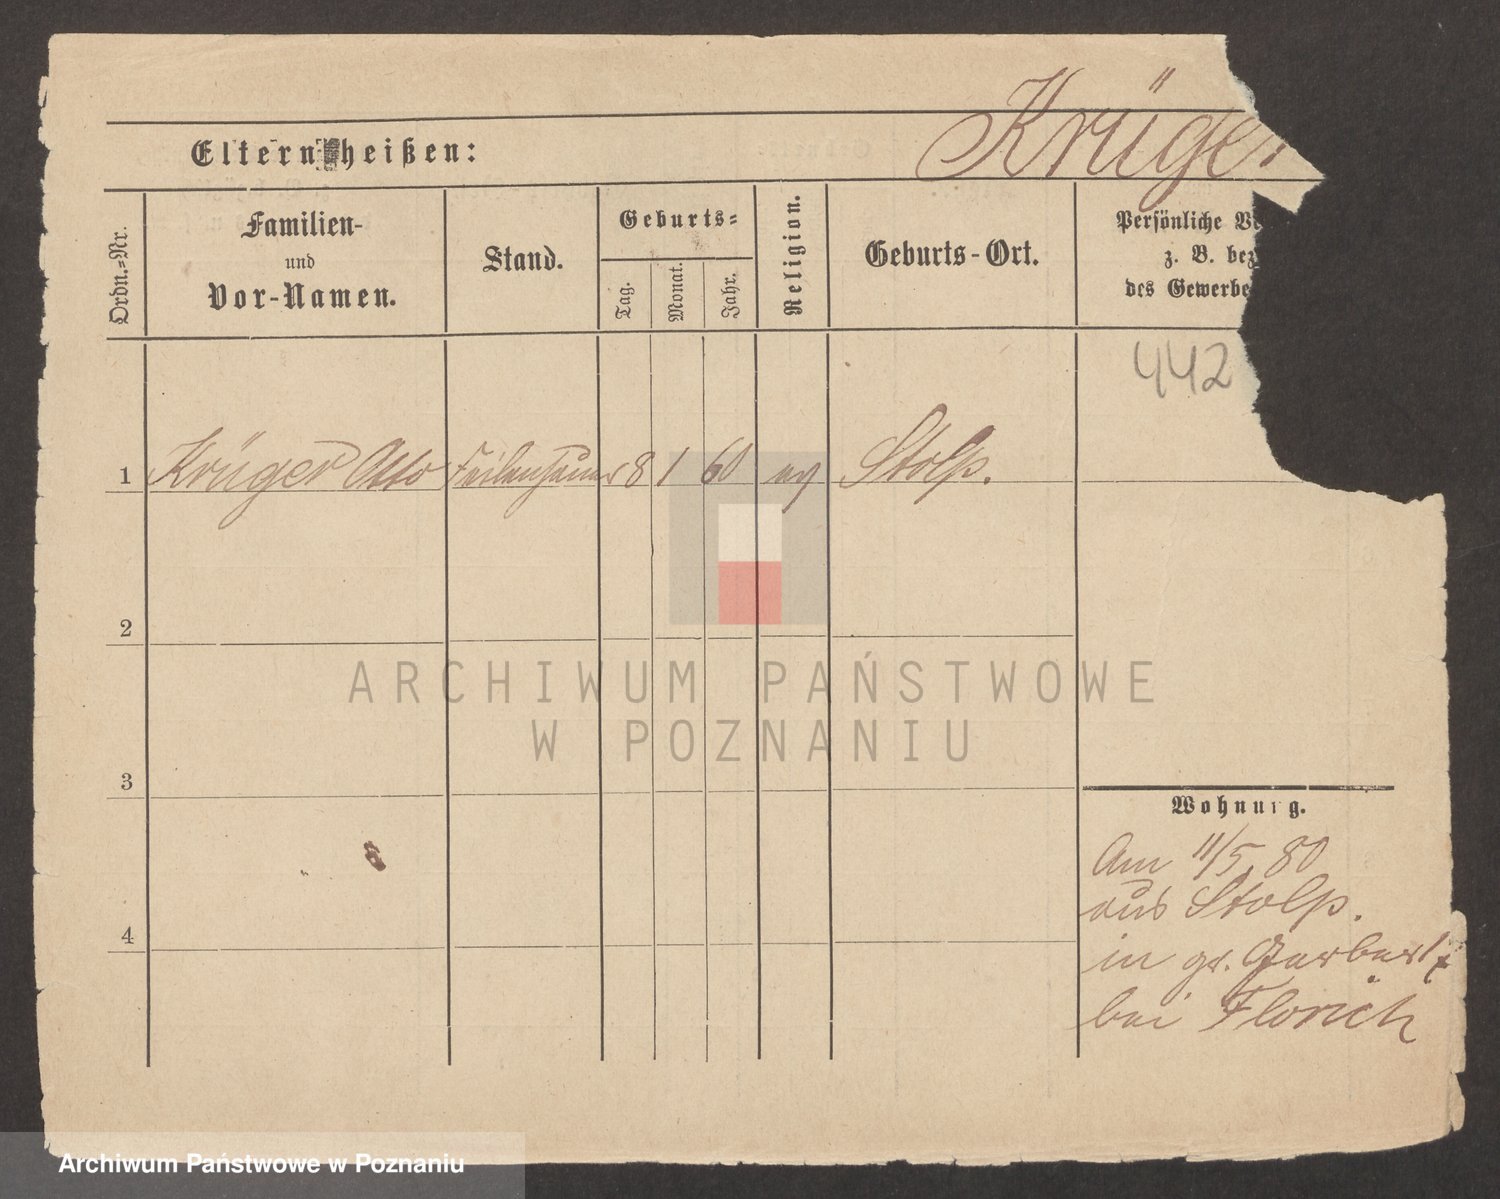 Krüger
Eltern heißen:
Ordn.=Nr.
Familien-
und
Vor-Namen.
Stand.
Geburts=
Tag.
Monat.
Jahr.
Religion.
Geburts-Ort.
Persönliche Ve
z. B. bez
des Gewerbe
442
1 Krüger Otto Feilenhauer 8 1 60 ev Stolp.
2
3
4
Wohnung.
Am 11/5 80
aus Stolp.
in gr. Gerber
bei Florich
ARCHIWUM PAŃSTWOWE
W POZNANIU
Archiwum Państwowe w Poznaniu